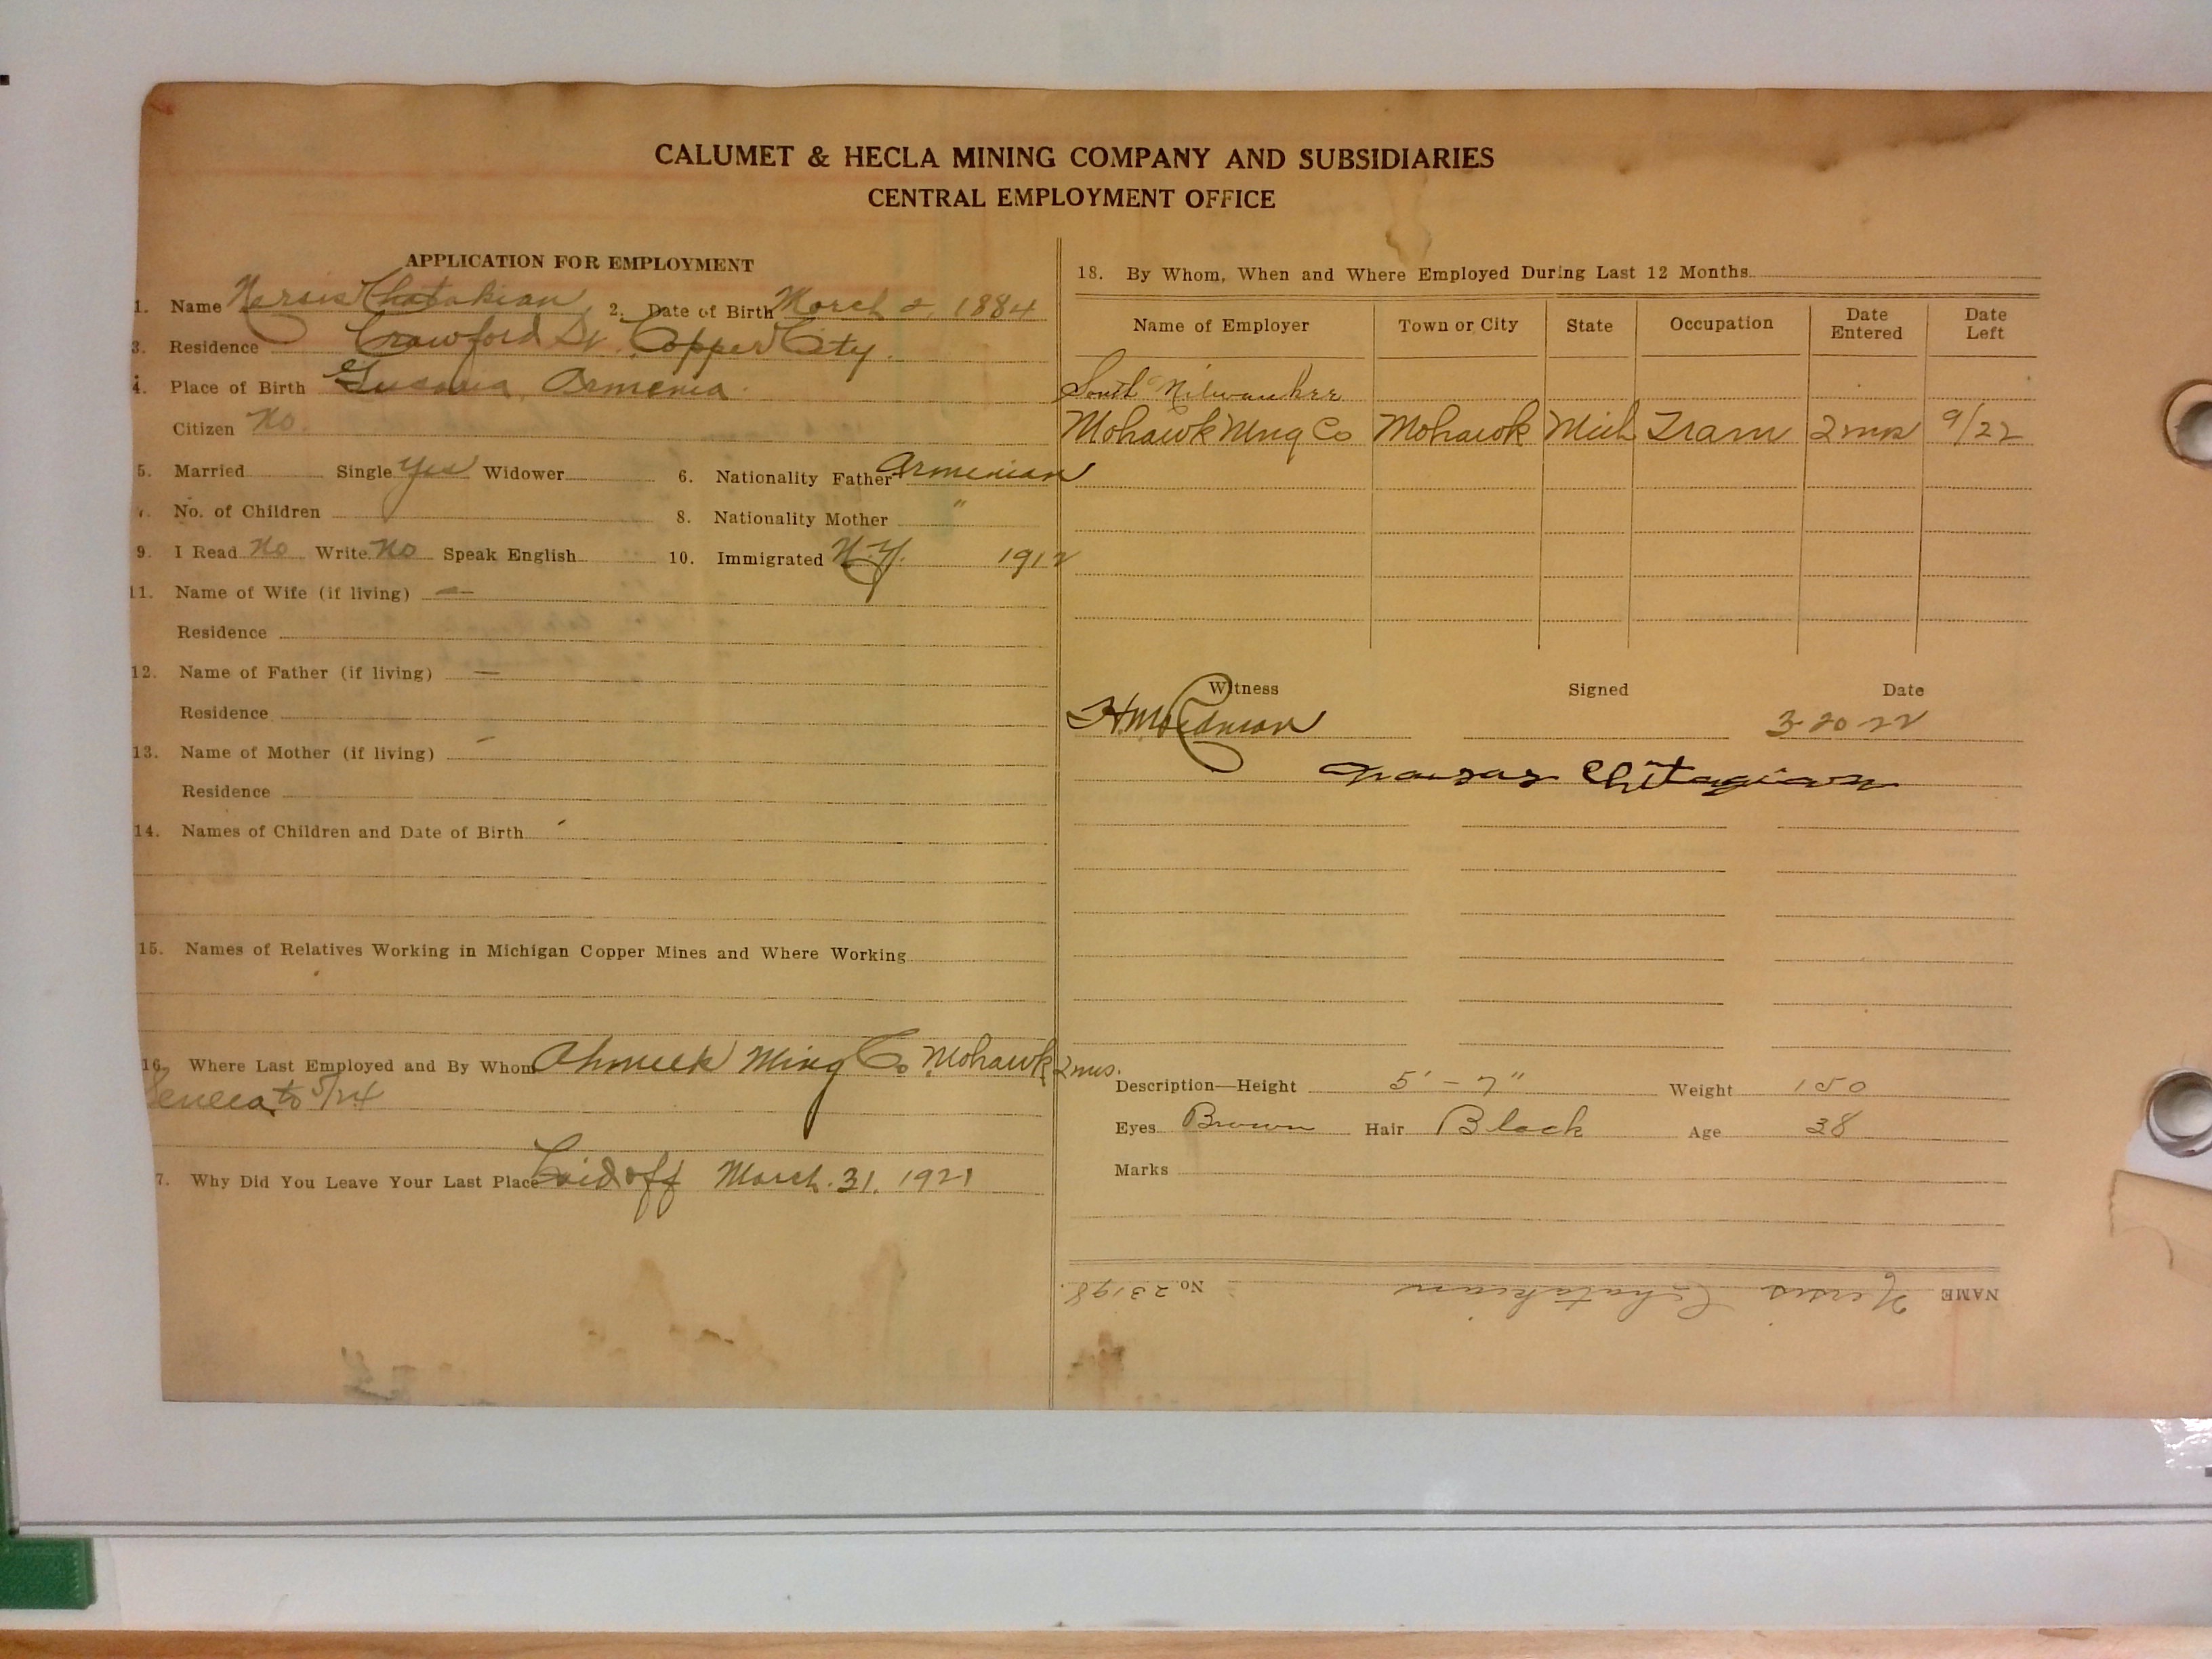 CALUMET & HECLA MINING COMPANY AND SUBSIDIARIES
CENTRAL EMPLOYMENT OFFICE
APPLICATION FOR EMPLOYMENT
1. Name Nersis Chatakian 2. Date of Birth March 2, 1884
3. Residence Crawford St. Copper City.
4. Place of Birth Armenia
Citizen No.
5. Married Single Yes Widower 6. Nationality Father Armenian
No. of Children 8. Nationality Mother "
9. I Read No Write No Speak English 10. Immigrated N.Y. 1912
11. Name of Wife (if living) —
Residence
12. Name of Father (if living) —
Residence
13. Name of Mother (if living) —
Residence
14. Names of Children and Date of Birth
15. Names of Relatives Working in Michigan Copper Mines and Where Working
16. Where Last Employed and By Whom Ahmeek Ming Co Mohawk 2 mos.
Seneca to 5/24
7. Why Did You Leave Your Last Place Laid off March. 31, 1921
18. By Whom, When and Where Employed During Last 12 Months
Name of Employer Town or City State Occupation Date Entered Date Left
South Milwaukee
Mohawk Mng Co Mohawk Mich Tram 2 mos 9/22
Witness Signed Date
3-20-22
Chitagian
Description—Height 5' - 7" Weight 150
Eyes Brown Hair Black Age 38
Marks
NAME Nersis Chatakian No. 23198.